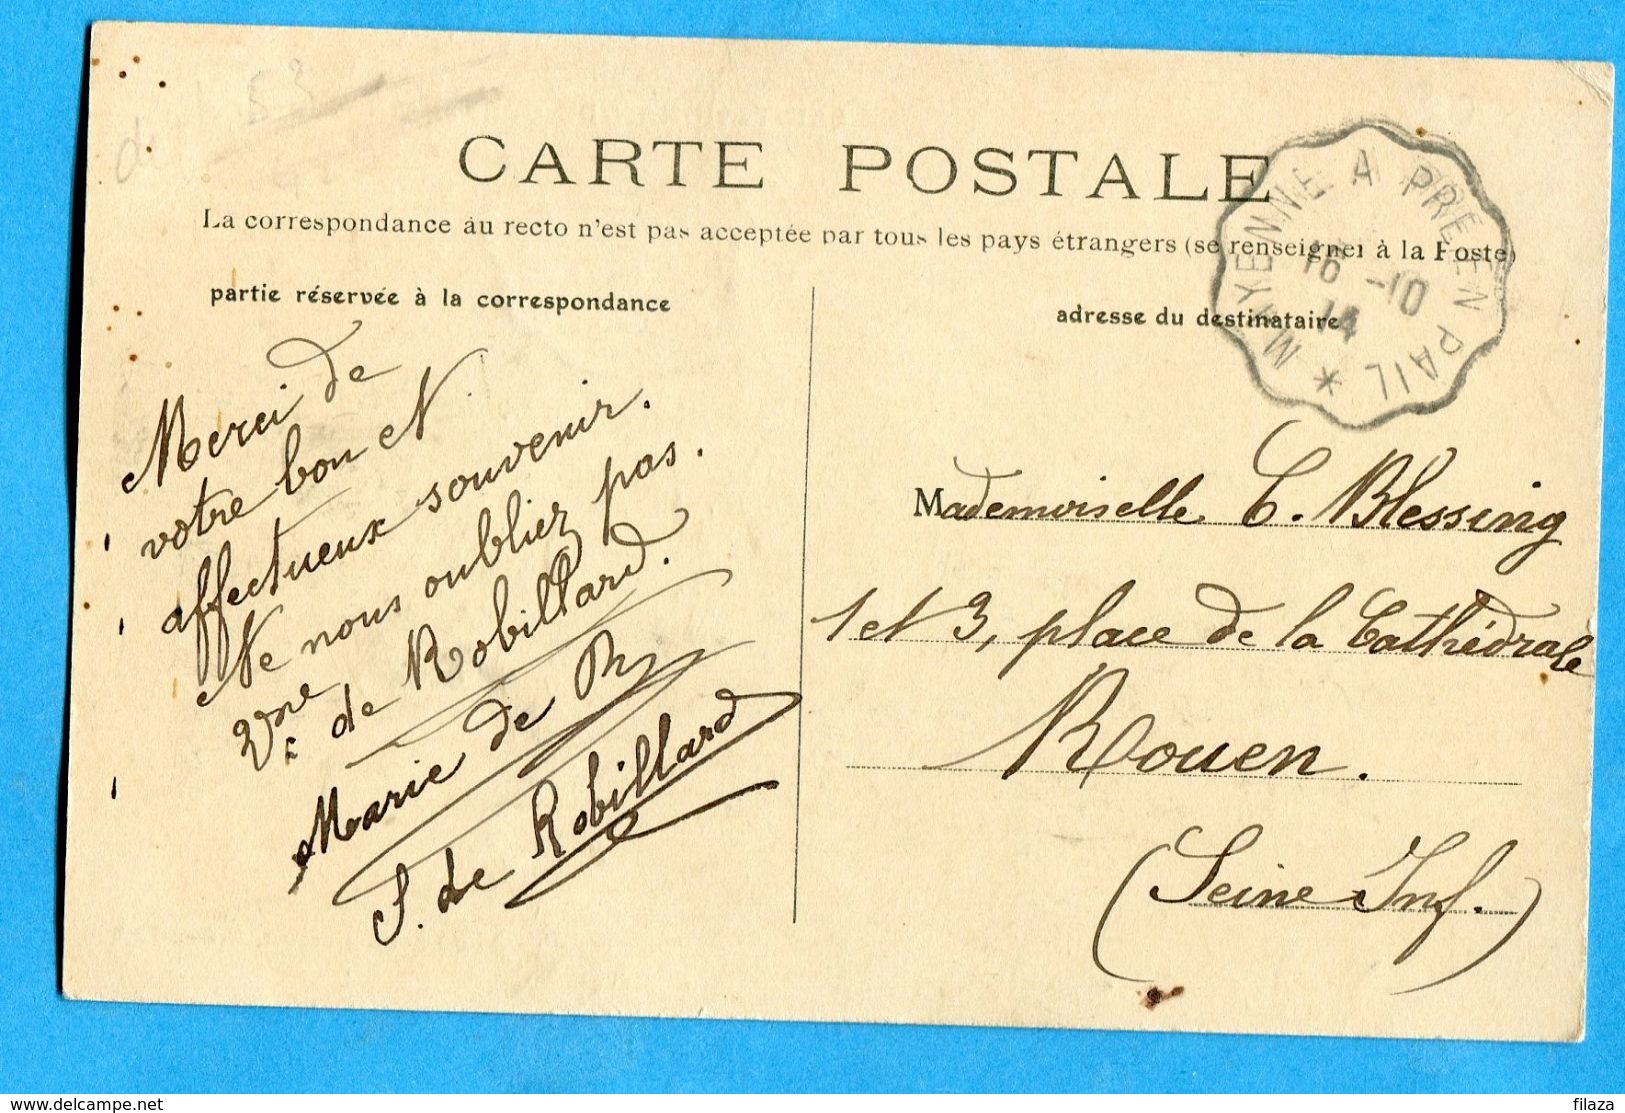 CARTE POSTALE
La correspondance au recto n'est pas acceptée par tous les pays étrangers (se renseigner à la Poste)
partie réservée à la correspondance
adresse du destinataire
MAYENNE A PRE EN PAIL *
16 -10
14
Merci de
votre bon
affectueux souvenir.
Ne nous oubliez pas.
de Robillard.
Marie de R
S. de Robillard
Mademoiselle C. Blessing
1 et 3, place de la Cathédrale
Rouen.
(Seine Inf.)
delcampe.net
filaza